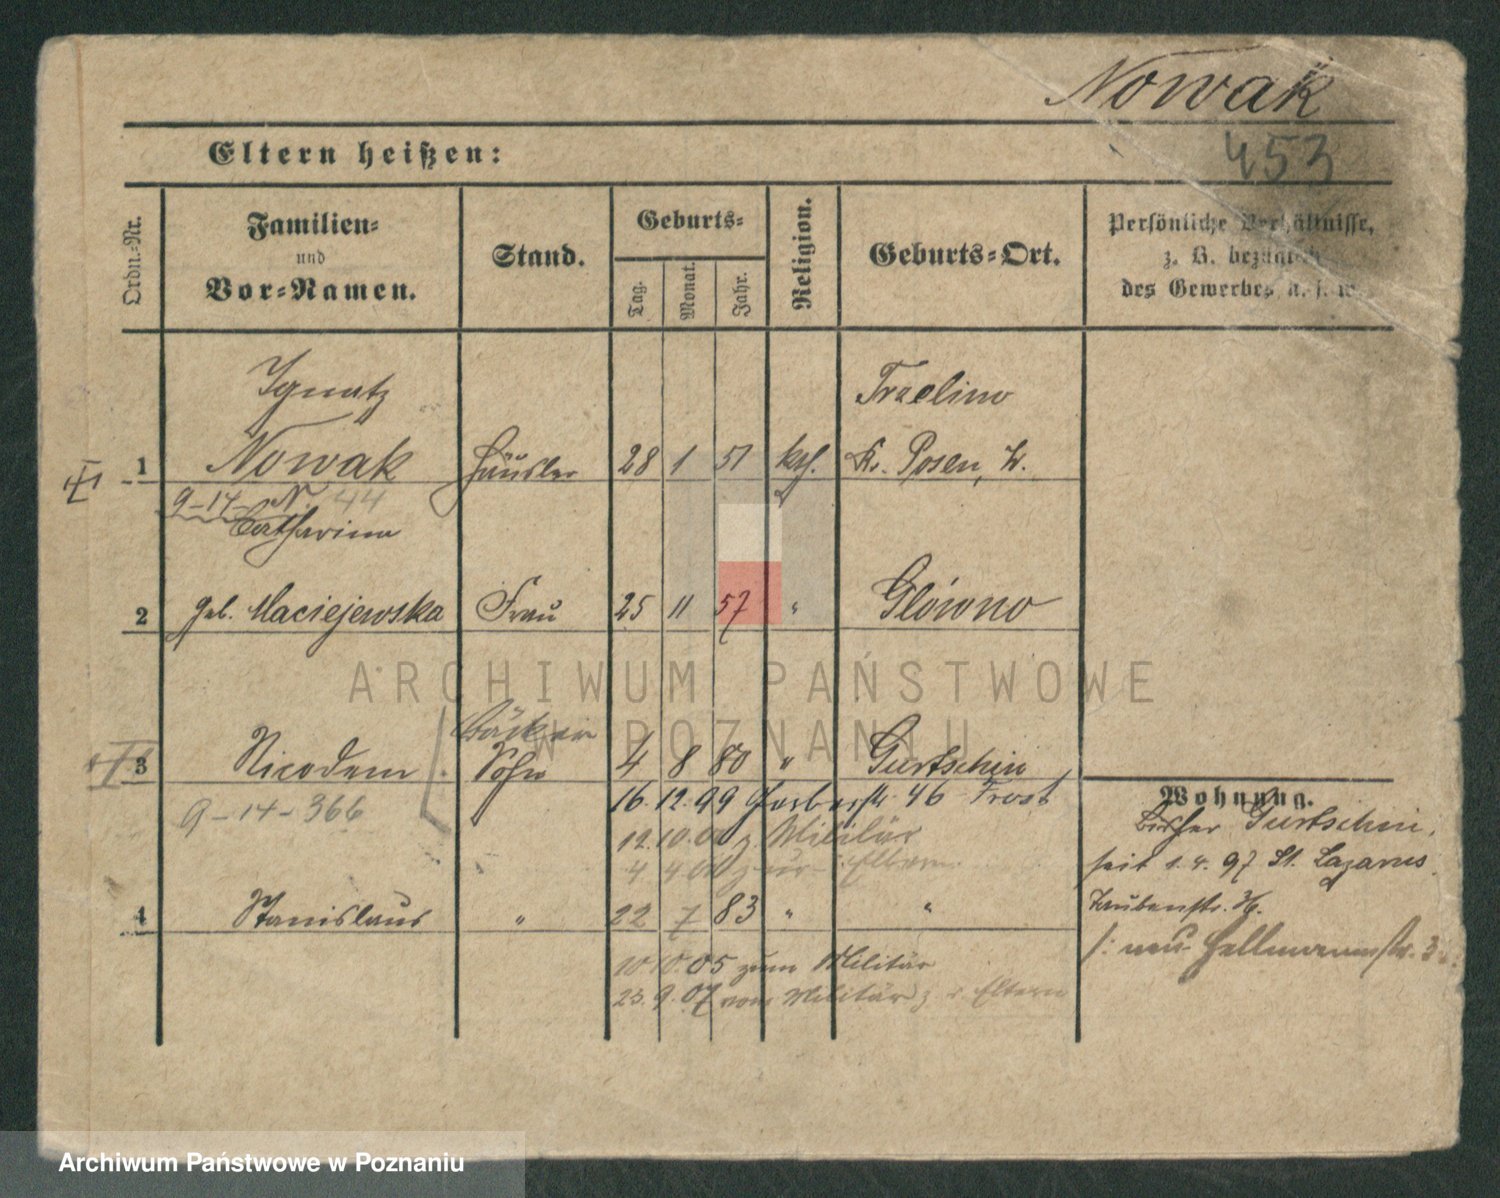 Nowak
453
Eltern heißen:
Ordn.-Nr.
Familien-
und
Vor-Namen.
Stand.
Geburts-
Tag.
Monat.
Jahr.
Religion.
Geburts-Ort.
Persönliche Verhältnisse,
z. B. bezüglich
des Gewerbes u. s. w.
Ignatz
1 Nowak Häusler 28 1 51 kath. Kr. Posen, W.
9-14- N. 44
Catharina
2 geb. Maciejewska Frau 25 11 57 " Glówno
Bäcker
3 Nicodem Sohn 4 8 80 " Gurtschin
9-14-366
16. 12. 99 46
12. 10. 00 z. Militär
4 4 Eltern
4 Stanislaus " 22 7 83 " "
10 10. 05 zum Militär
23. 9. 07 vom Militär z Eltern
Wohnung.
Bisher Gurtschin,
seit 1. 4. 97 St. Lazarus
Taubenstr.
ARCHIWUM PAŃSTWOWE
W POZNANIU
Archiwum Państwowe w Poznaniu